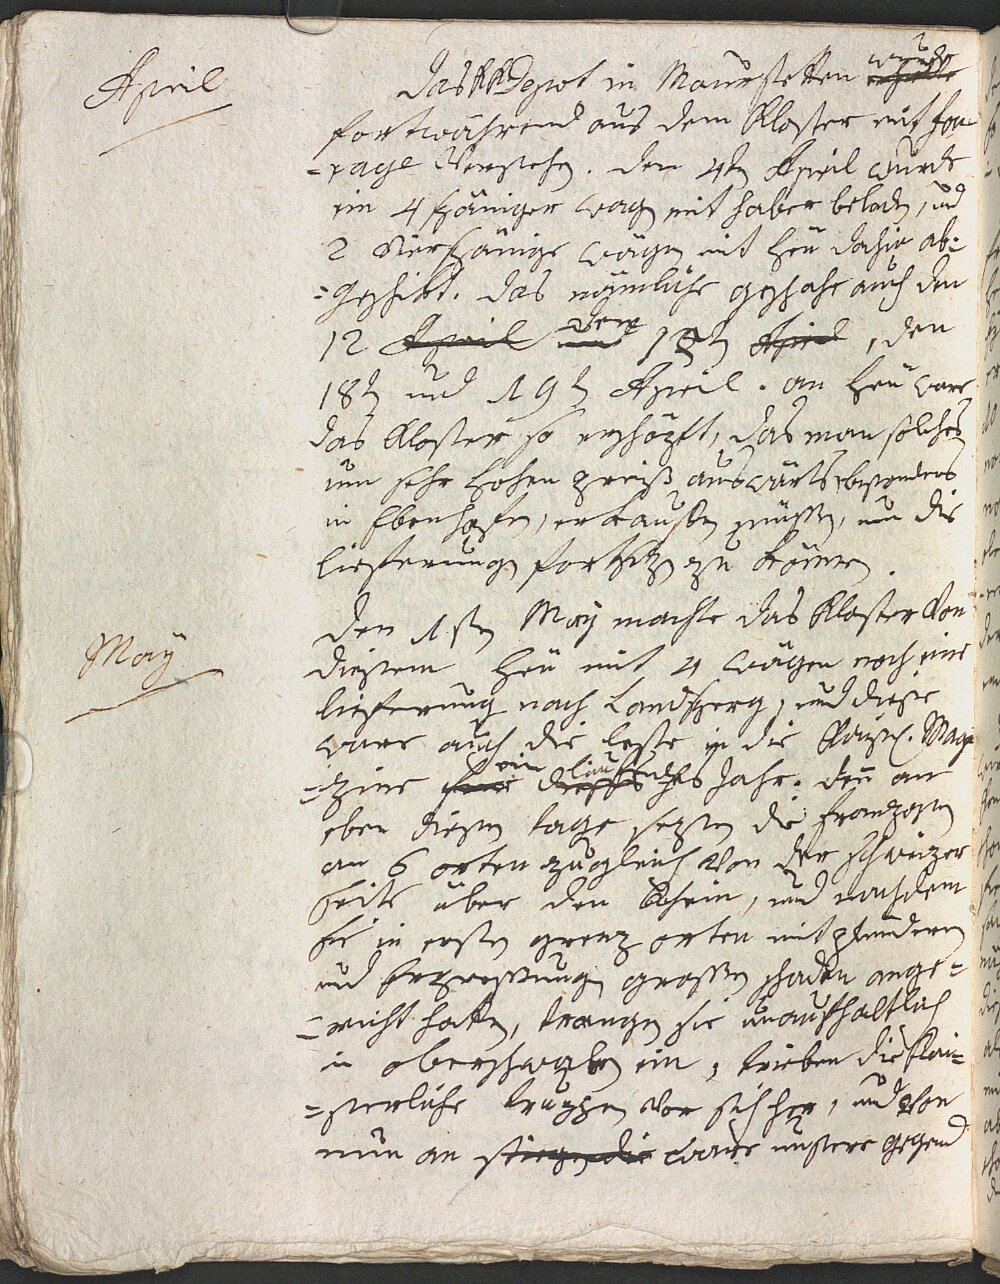 April
das KK Depot in Maurstetten wurde
fortwährend aus dem Kloster mit fou-
-rage versehen. den 4ten April wurde
ein 4 späniger wagen mit haber beladen, und
2 vierspänige wägen mit heü dahin ab-
-geschikt. das nämliche geschahe auch den
12 April den 15ten April, den
18ten und 19ten April. an heü ware
das Kloster so erschöpft, das man solches
um sehr hohen preiß auswärts, besonders
in Ebenhofen, erkaufen müssen, um die
lieferungen fortsetzen zu können.
May
den 1sten May machte das Kloster von
diesem heü mit 4 wägen noch eine
lieferung nach Landsperg, und diese
ware auch die leste in die Kaiserl. Maga-
-zine für ein lauffendes Jahr. den an
eben diesem tage sezten die Franzosen
an 6 orten zugleich von der schweizer
seite über den Rhein, und nachdem
sie in ersten grenz orten mit plündern
und erpressungen grossen schaden ange-
-richt hatten, trangen sie unaufhaltlich
in oberschwaben ein, trieben die Kai-
-serliche truppen vor sich her, und von
nun an stiegen die ware unsere gegend